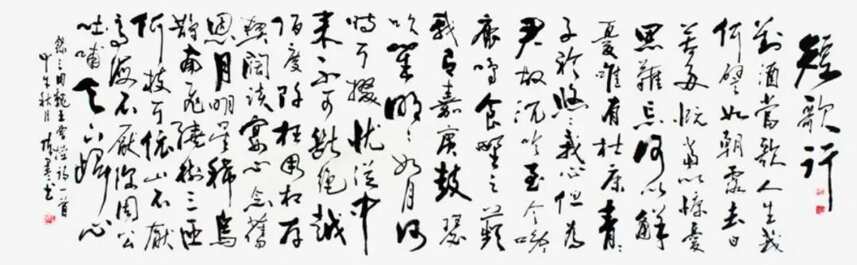 短歌行
對酒當歌人生幾
何譬如朝露去日
苦多慨當以慷憂
思難忘何以解
憂唯有杜康青々
子衿悠々我心但為
君故沉吟至今呦
鹿鳴食野之蘋
我有嘉賓鼓瑟
吹笙明々如月何
時可掇憂從中
来不可斷絕越
陌度阡枉用相存
契闊談宴心念舊
恩月明星稀烏
鵲南飛繞樹三匝
何枝可依山不厭
高海不厭深周公
吐哺天下歸心
錄三國魏王曹操詩一首
甲午秋月 書